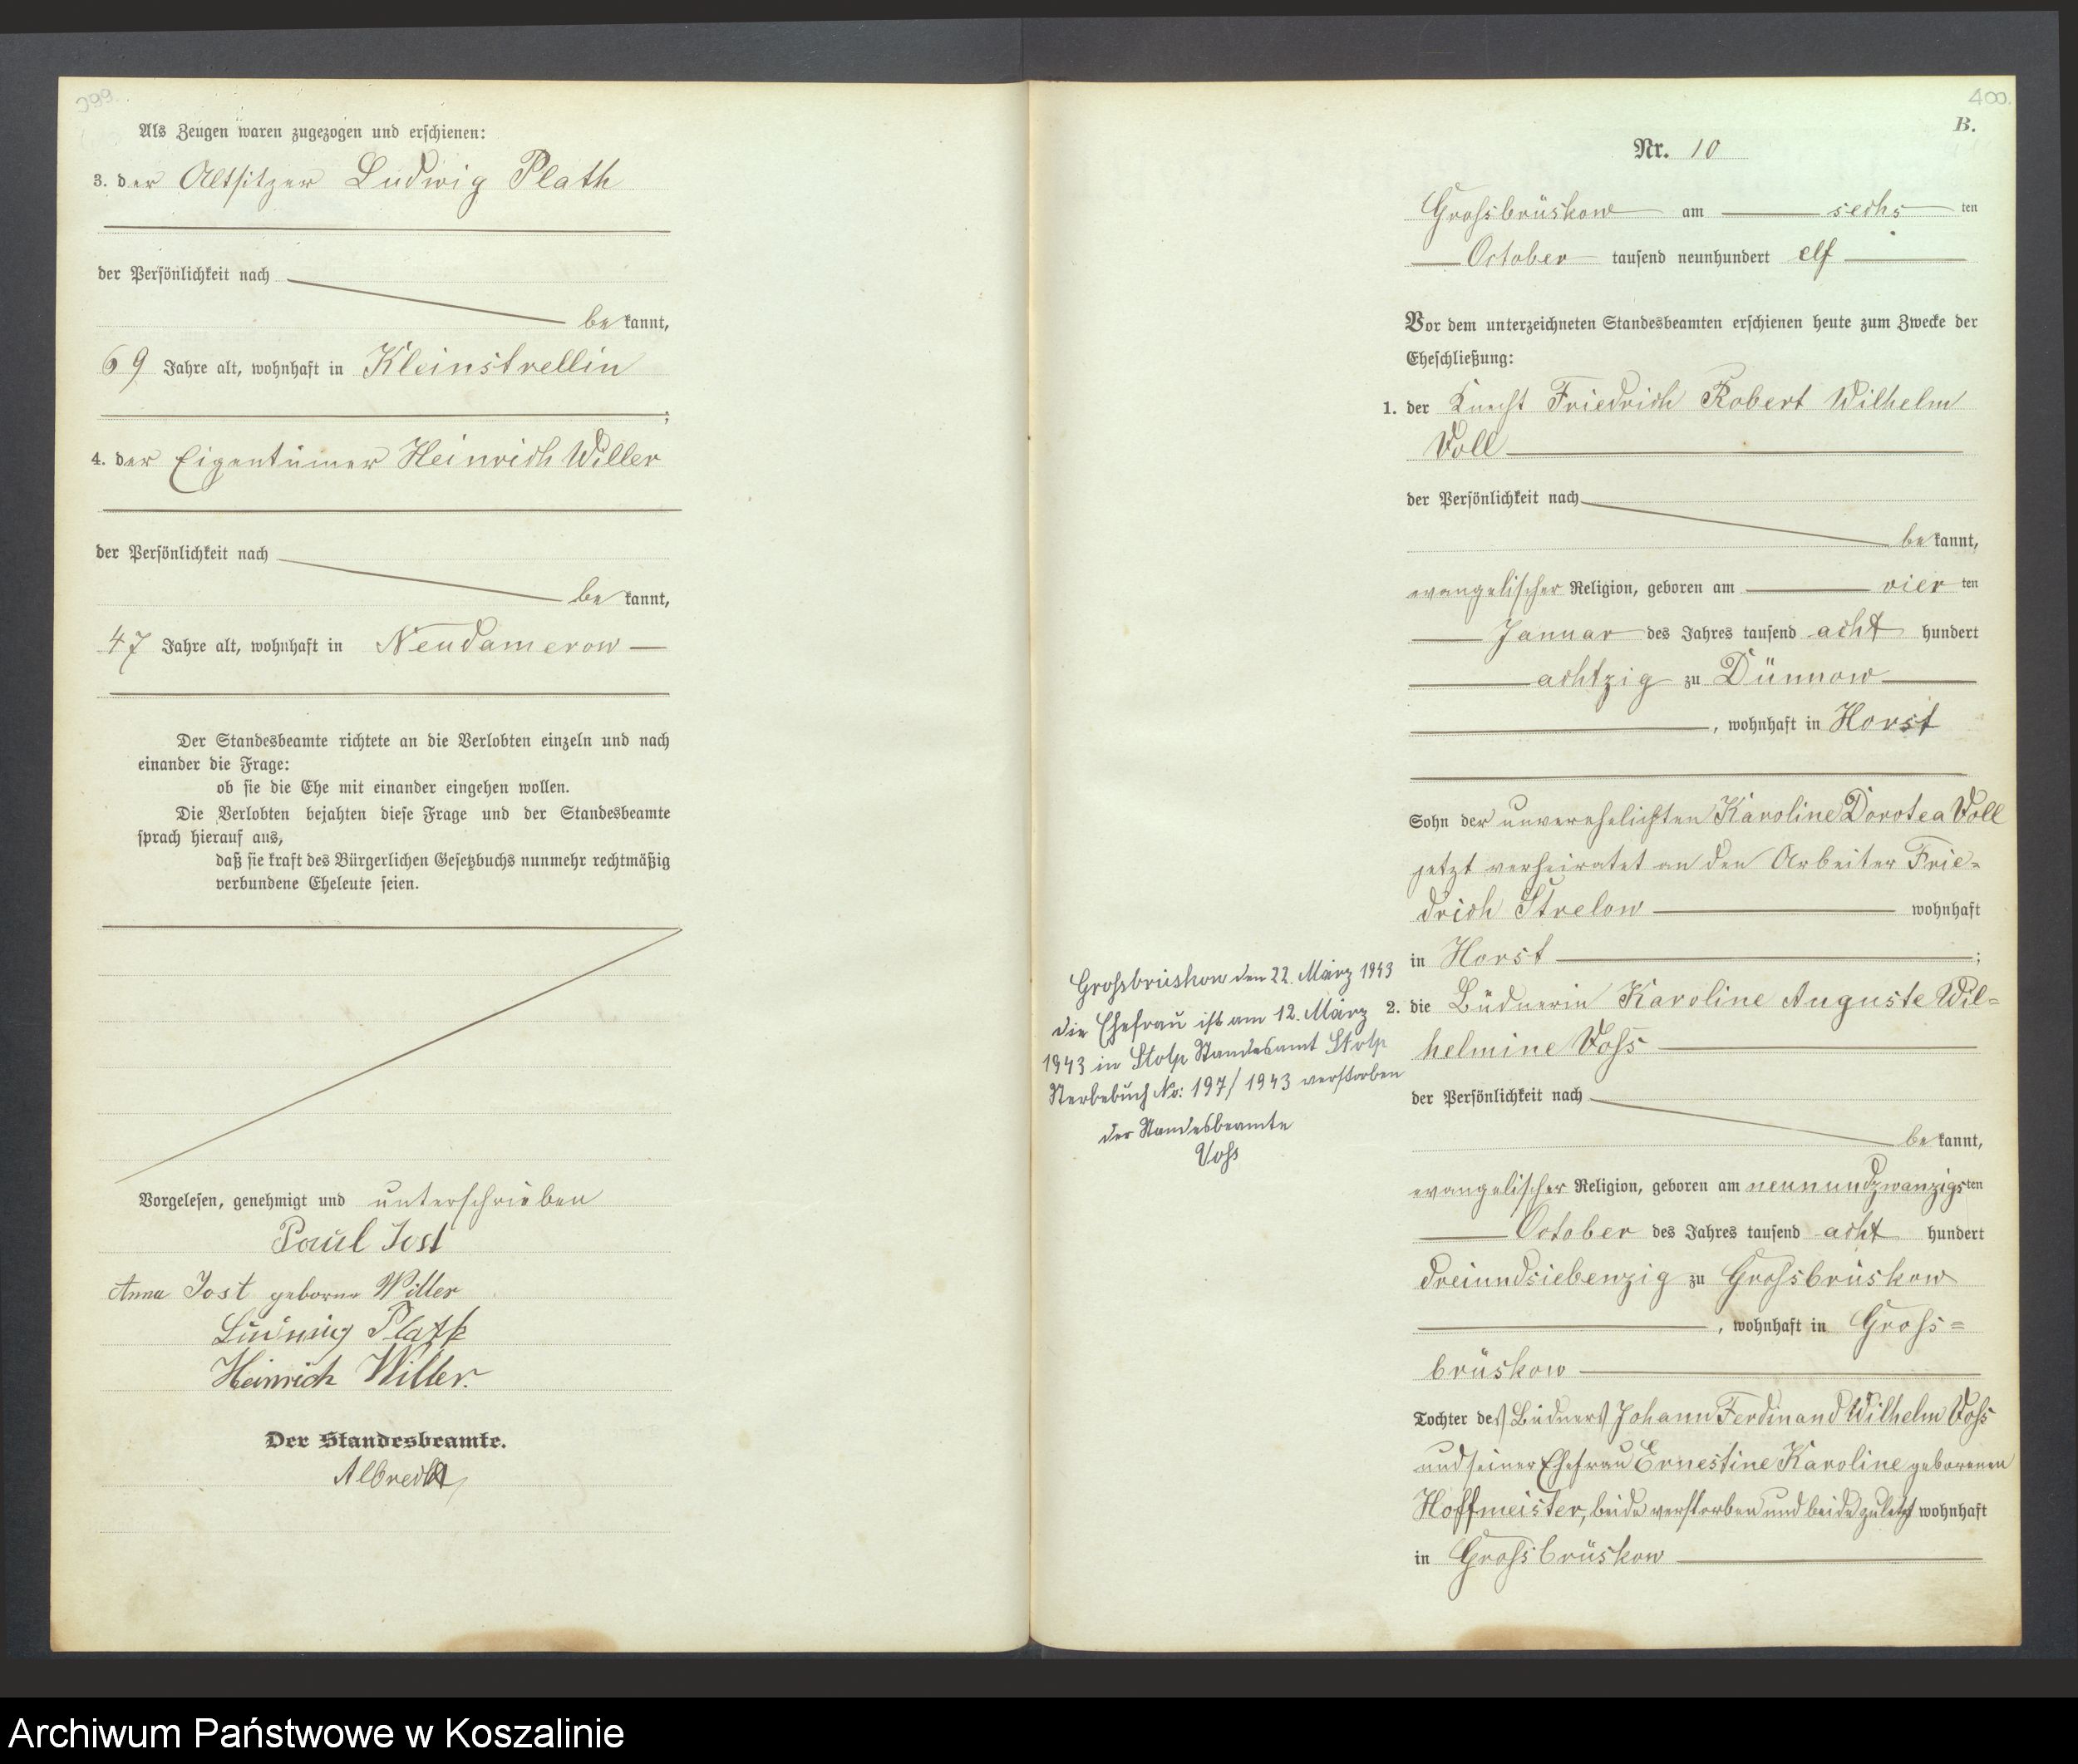 399.
Als Zeugen waren zugezogen und erschienen:
3. der Altsitzer Ludwig Plath
der Persönlichkeit nach
be kannt,
69 Jahre alt, wohnhaft in Kleinstrellin
;
4. der Eigentümer Heinrich Willer
der Persönlichkeit nach
be kannt,
47 Jahre alt, wohnhaft in Neudamerow
Der Standesbeamte richtete an die Verlobten einzeln und nach
einander die Frage:
ob sie die Ehe mit einander eingehen wollen.
Die Verlobten bejahten diese Frage und der Standesbeamte
sprach hierauf aus,
daß sie kraft des Bürgerlichen Gesetzbuchs nunmehr rechtmäßig
verbundene Eheleute seien.
Vorgelesen, genehmigt und unterschrieben
Paul Jost
Anna Jost geborne Willer
Ludwig Plath
Heinrich Willer.
Der Standesbeamte.
Albrecht
400.
B.
Nr. 10
Grossbrüskow am sechs ten
October tausend neunhundert elf
Vor dem unterzeichneten Standesbeamten erschienen heute zum Zwecke der
Eheschließung:
1. der Knecht Friedrich Robert Wilhelm
Voll
der Persönlichkeit nach
be kannt,
evangelischer Religion, geboren am vier ten
Januar des Jahres tausend acht hundert
achtzig zu Dünnow
, wohnhaft in Horst
Sohn der unverehelichten Karoline Dorotea Voll
jetzt verheiratet an den Arbeiter Frie=
drich Strelow wohnhaft
in Horst ;
2. die Büdnerin Karoline Auguste Wil=
helmine Voss
der Persönlichkeit nach
be kannt,
evangelischer Religion, geboren am neunundzwanzigsten
October des Jahres tausend acht hundert
dreiundsiebenzig zu Grossbrüskow
, wohnhaft in Gross=
brüskow
Tochter des Büdners Johann Ferdinand Wilhelm Voss
und seiner Ehefrau Ernestine Karoline geborenen
Hoffmeister, beide verstorben und beide zuletzt wohnhaft
in Grossbrüskow
Grossbrüskow den 22. März 1943
die Ehefrau ist am 12. März
1943 in Stolp Standesamt Stolp
Sterbebuch No: 197/1943 verstorben
der Standesbeamte
Voss
Archiwum Państwowe w Koszalinie